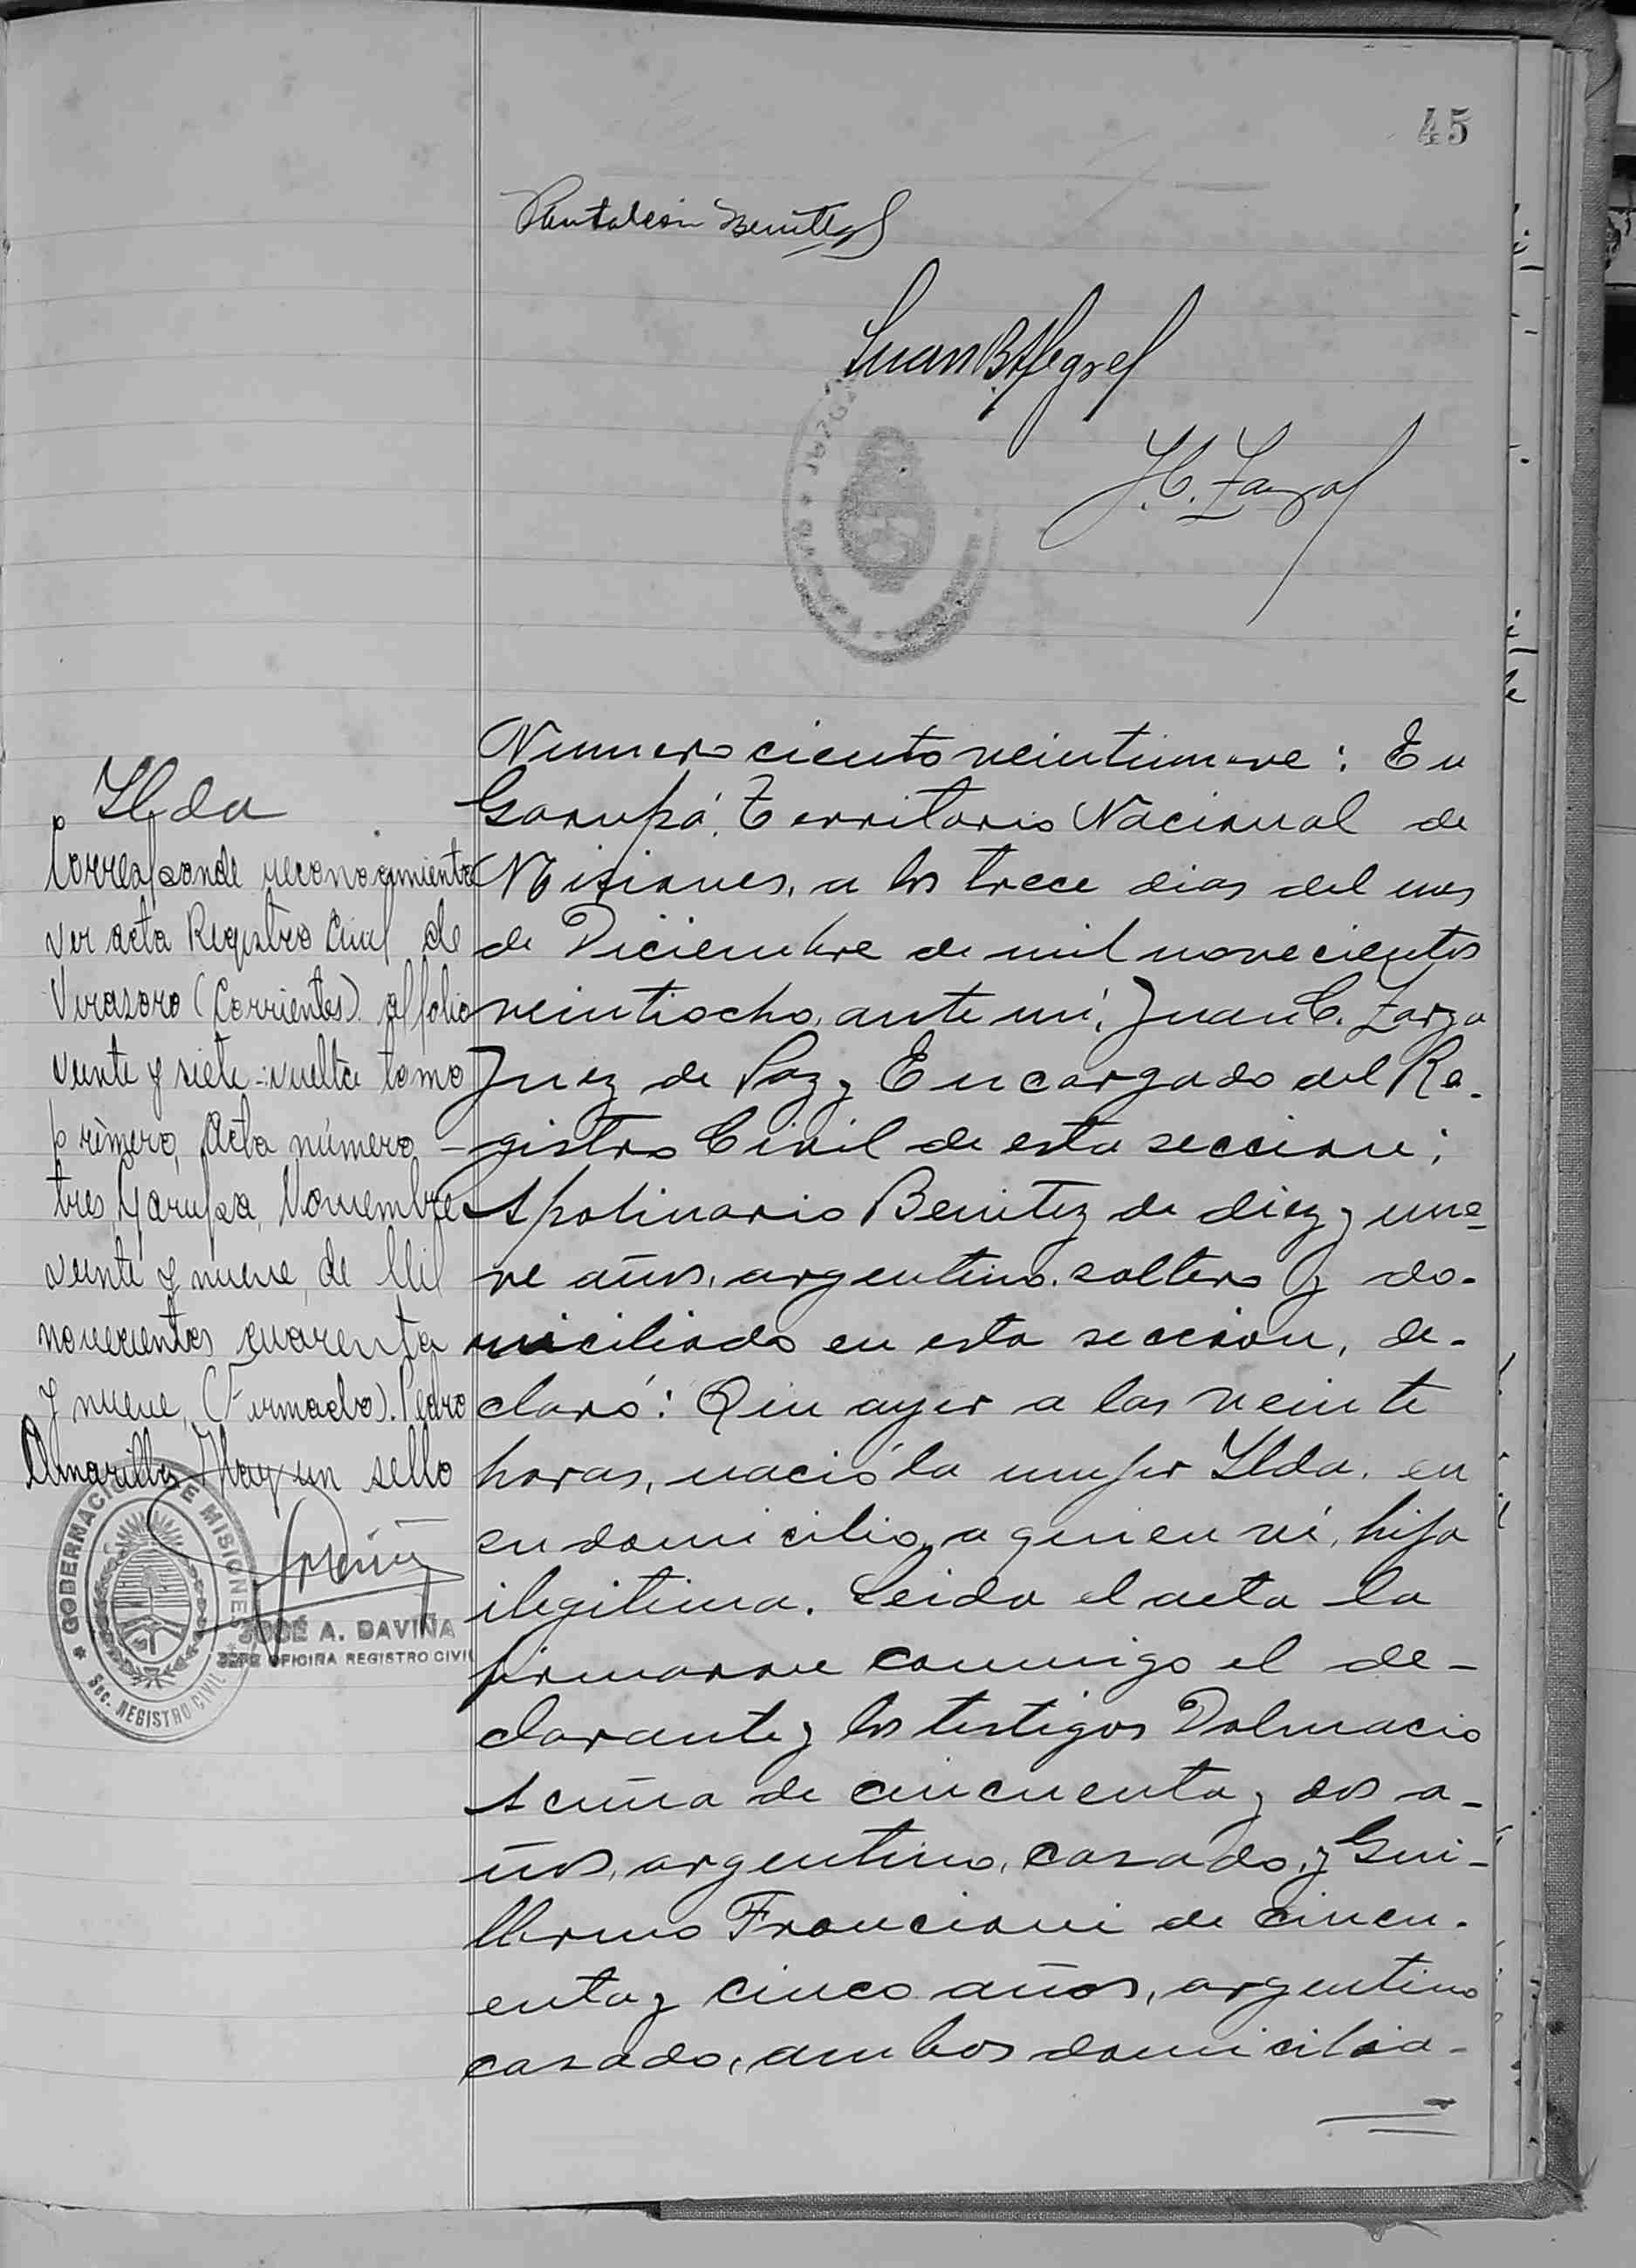 45
Pantaleón Benitez
Juan B. Alegre
J. C. Zarza
Ilda
Corresponde reconocimiento
ver acta Registro Civil de
Virasoro (Corrientes) al folio
veinte y siete - vuelta tomo
primero, Acta número -
tres, Garupa, Noviembre
veinte y nueve, de Mil
novecientos cuarenta
y nueve, (Firmado). Pedro
Almarilla, Hay un sello
GOBERNACION DE MISIONES
Sec. REGISTRO CIVIL
JOSÉ A. DAVIÑA
JEFE OFICINA REGISTRO CIVIL
Numero ciento veintinueve: En
Garupá, Territorio Nacional de
Misiones, a los trece dias del mes
de Diciembre de mil novecientos
veintiocho, ante mí, Juan C. Zarza
Juez de Paz y Encargado del Re-
gistro Civil de esta seccion;
Apolinario Benitez de diez y nue
ve años, argentino, soltero y do-
miciliado en esta seccion, de-
claró: Que ayer a las veinte
horas, nació la mujer Ilda, en
su domicilio, a quien ví, hija
ilegitima. Leida el acta la
firmaron conmigo el de-
clarante y los testigos Dalmacio
Acuña de cincuenta y dos a-
ños, argentino, casado, y Gui-
llermo Francioni de cincu-
enta y cinco años, argentino
casado, ambos domicilia-